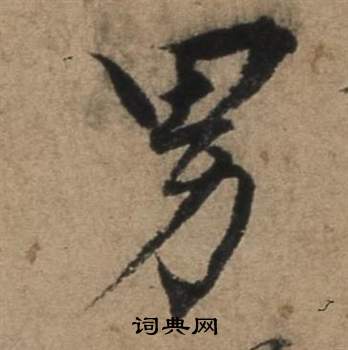 男
词典网